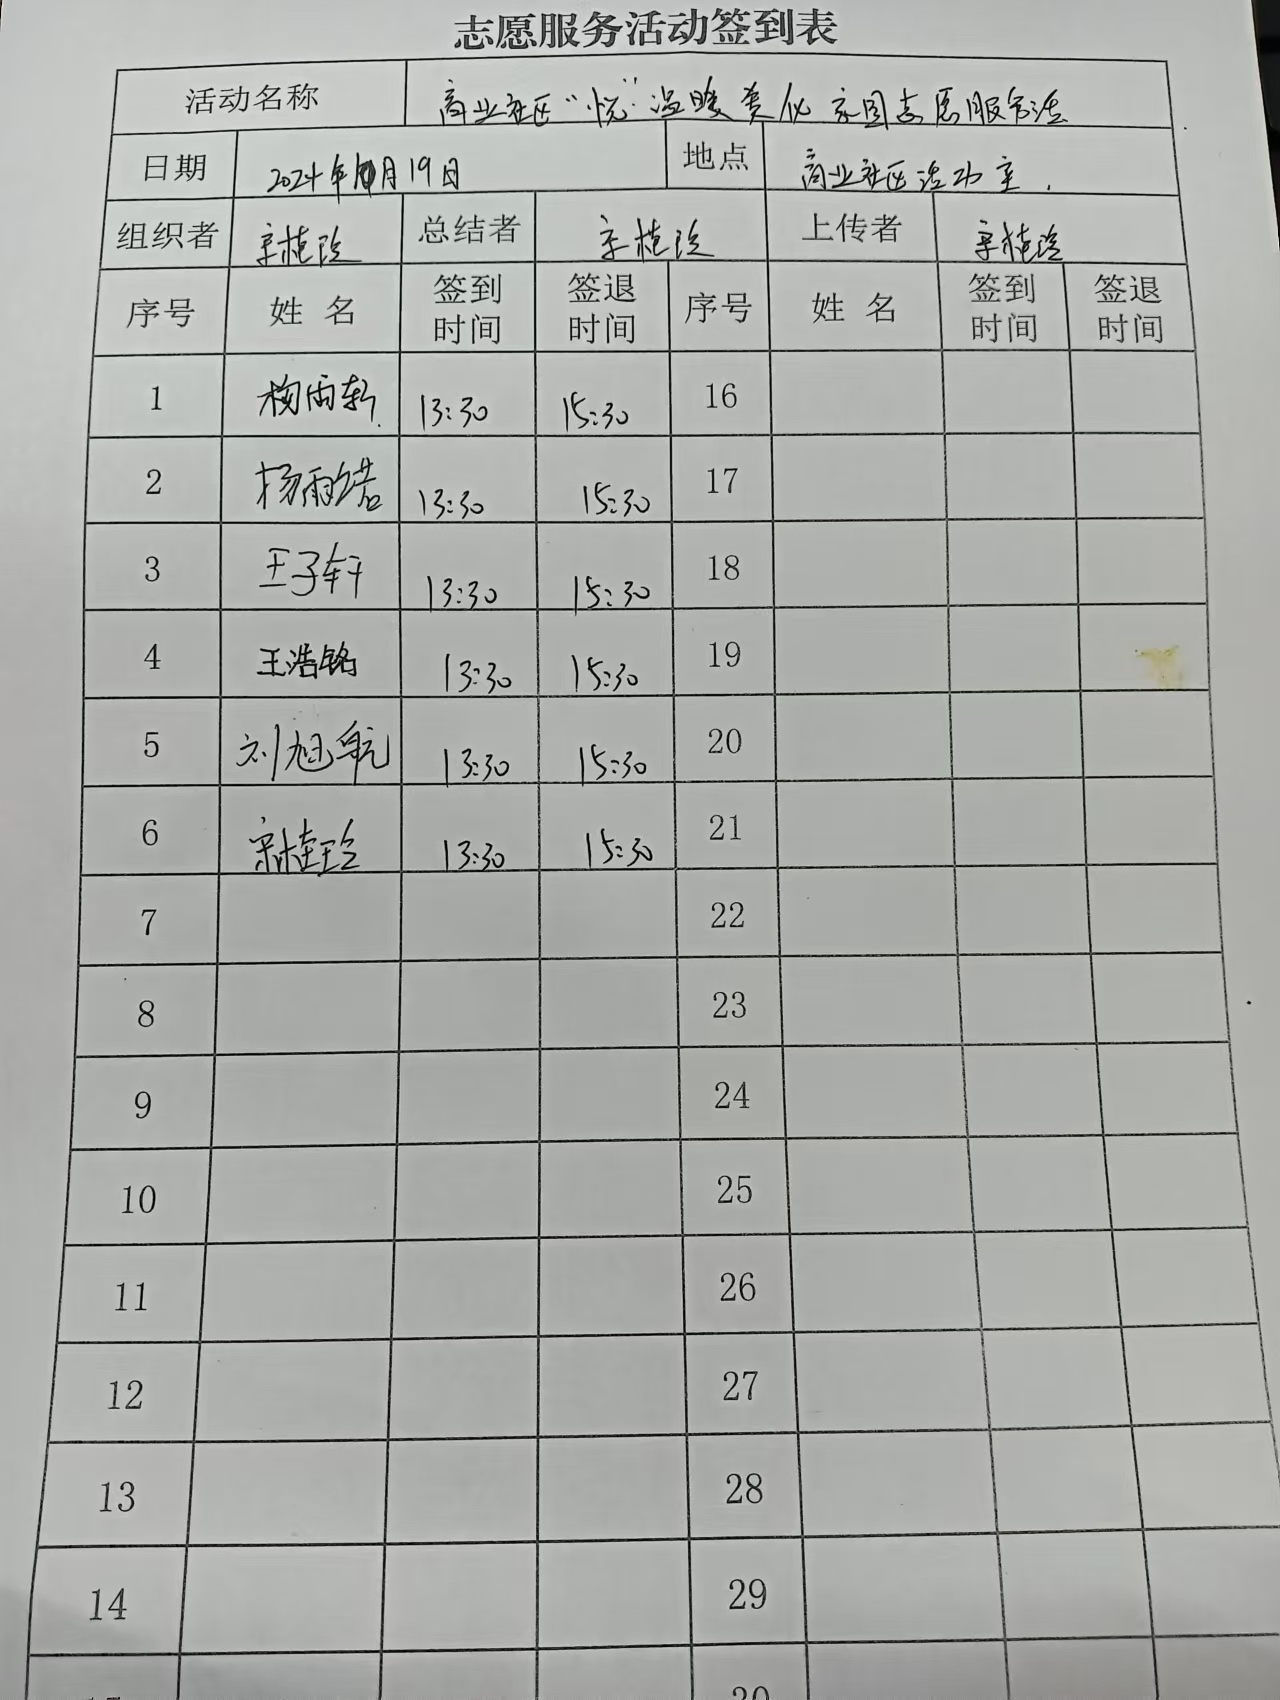 志愿服务活动签到表
活动名称 商业社区“悦”温暖美化家园志愿服务活
日期 2024年10月19日 地点 商业社区活动室.
组织者 宋桂玲 总结者 宋桂玲 上传者 宋桂玲
序号 姓名 签到时间 签退时间 序号 姓名 签到时间 签退时间
1 梅雨轩 13:30 15:30 16
2 杨雨诺 13:30 15:30 17
3 王子轩 13:30 15:30 18
4 王浩铭 13:30 15:30 19
5 刘旭航 13:30 15:30 20
6 宋桂玲 13:30 15:30 21
7 22
8 23
9 24
10 25
11 26
12 27
13 28
14 29